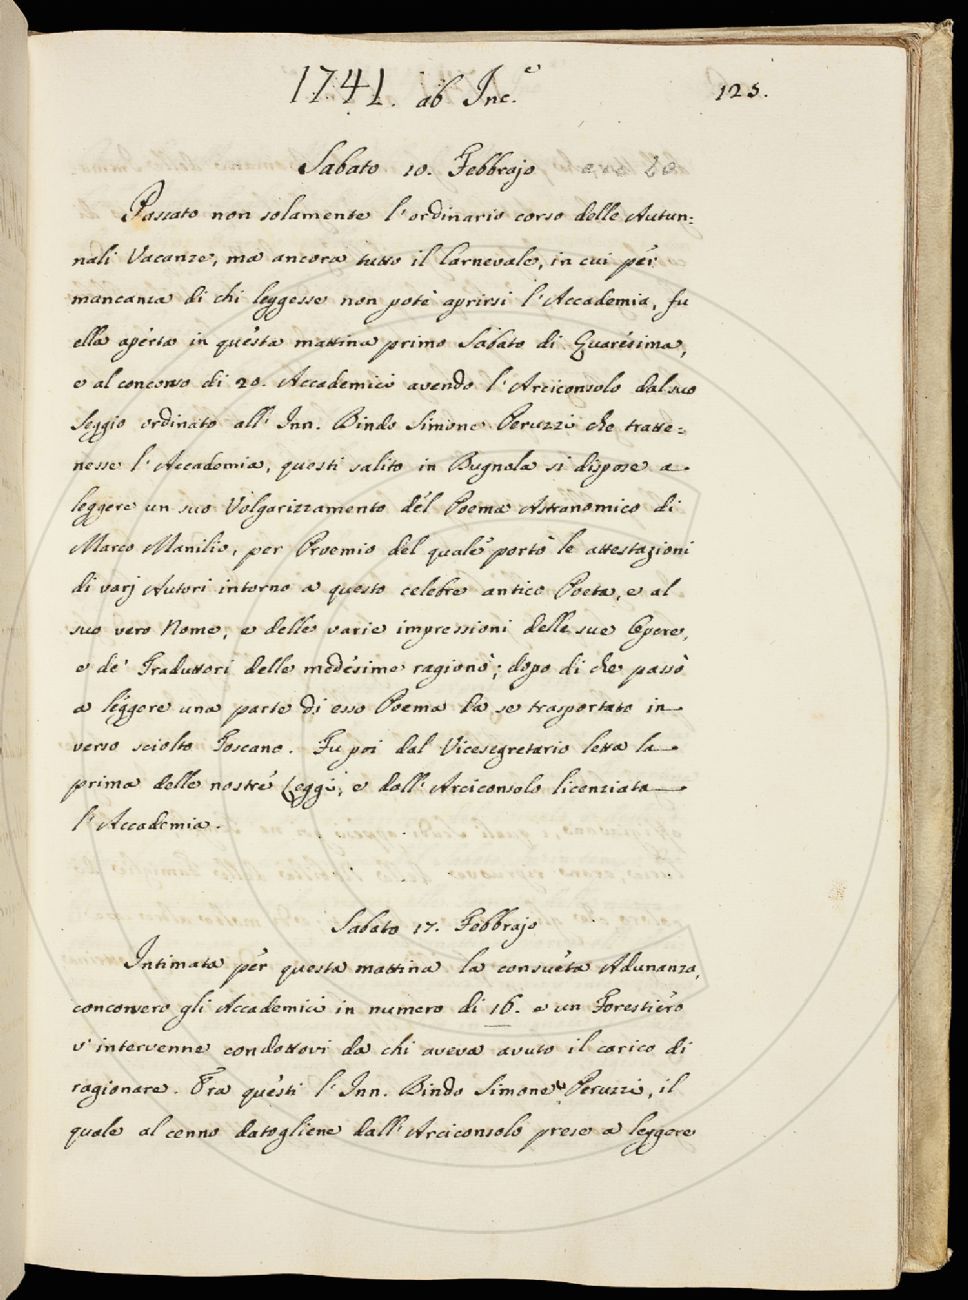 1741. ab Inc.e
125.
Sabato 10. Febbrajo
Passato non solamente l'ordinario corso delle Autun=
nali Vacanze, ma ancora tutto il Carnevale, in cui per
mancanza di chi leggesse non potè aprirsi l'Accademia, fu
ella aperta in questa mattina primo Sabato di Quaresima,
e al concorso di 20. Accademici avendo l'Arciconsolo dal suo
Seggio ordinato all'Inn. Bindo Simone Peruzzi che tratte=
nesse l'Accademia, questi salito in Bugnola si dispose a
leggere un suo Volgarizzamento del Poema Astronomico di
Marco Manilio, per Proemio del quale portò le attestazioni
di varj Autori intorno a questo celebre antico Poeta, e al
suo vero Nome, e delle varie impressioni delle sue Opere,
e de' Traduttori delle medesime ragionò; dopo di che passò
a leggere una parte di esso Poema da se trasportato in
verso sciolto Toscano. Fu poi dal Vicesegretario letta la
prima delle nostre Leggi, e dall'Arciconsolo licenziata
l'Accademia.
Sabato 17. Febbrajo
Intimata per questa mattina la consueta Adunanza,
concorsero gli Accademici in numero di 16. e un Forestiero
v'intervenne condottovi da chi aveva avuto il carico di
ragionare. Fra questi l'Inn. Bindo Simone Peruzzi, il
quale al cenno datogliene dall'Arciconsolo prese a leggere